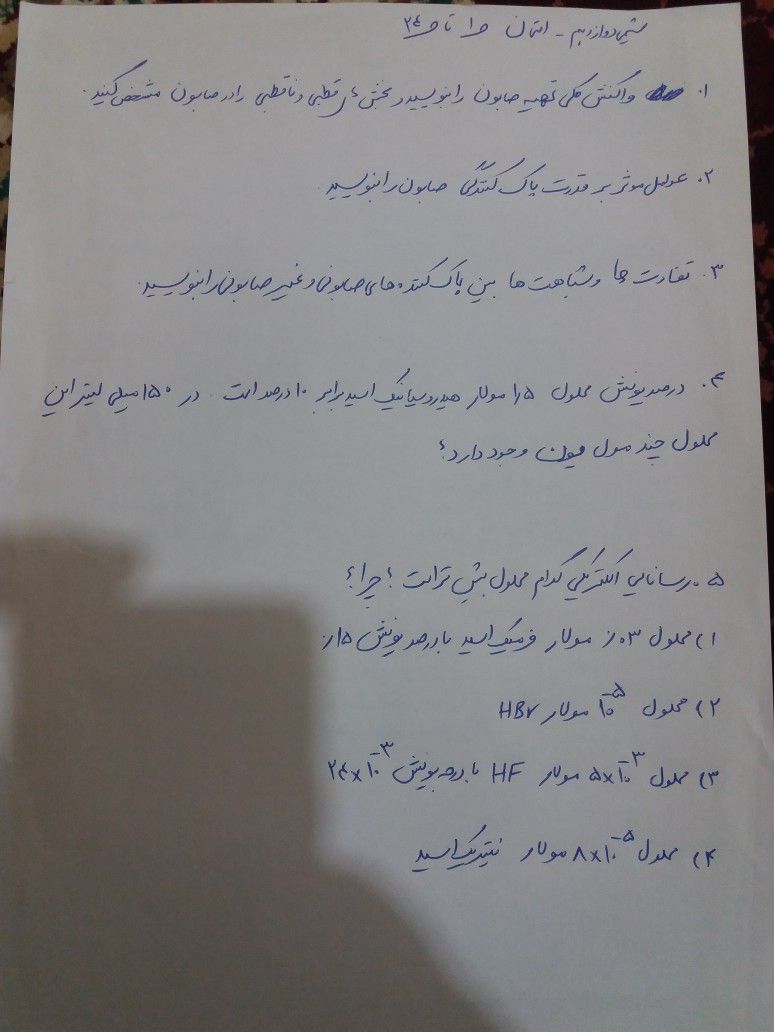 شیمی دوازدهم - امتحان ص۱ تا ص۲۴
۱. واکنش کلی تهیه صابون را بنویسید و بخش های قطبی و ناقطبی را در صابون مشخص کنید.
۲. عوامل موثر بر قدرت پاک کنندگی صابون را بنویسید.
۳. تفاوت ها و شباهت ها بین پاک کننده های صابونی و غیر صابونی را بنویسید.
۴. درصد یونش محلول ۱٫۵ مولار هیدروسیانیک اسید برابر ۱۰ درصد است. در ۱۵۰ میلی لیتر این
محلول چند مول یون وجود دارد؟
۵. رسانایی الکتریکی کدام محلول بیش تر است؟ چرا؟
۱) محلول ۰٫۰۳ مولار فرمیک اسید با درصد یونش ۱۵٪
۲) محلول ۱۰⁻⁵ مولار HBr
۳) محلول ۵×۱۰⁻³ مولار HF با درجه یونش ۲۴×۱۰⁻³
۴) محلول ۸×۱۰⁻⁵ مولار نیتریک اسید